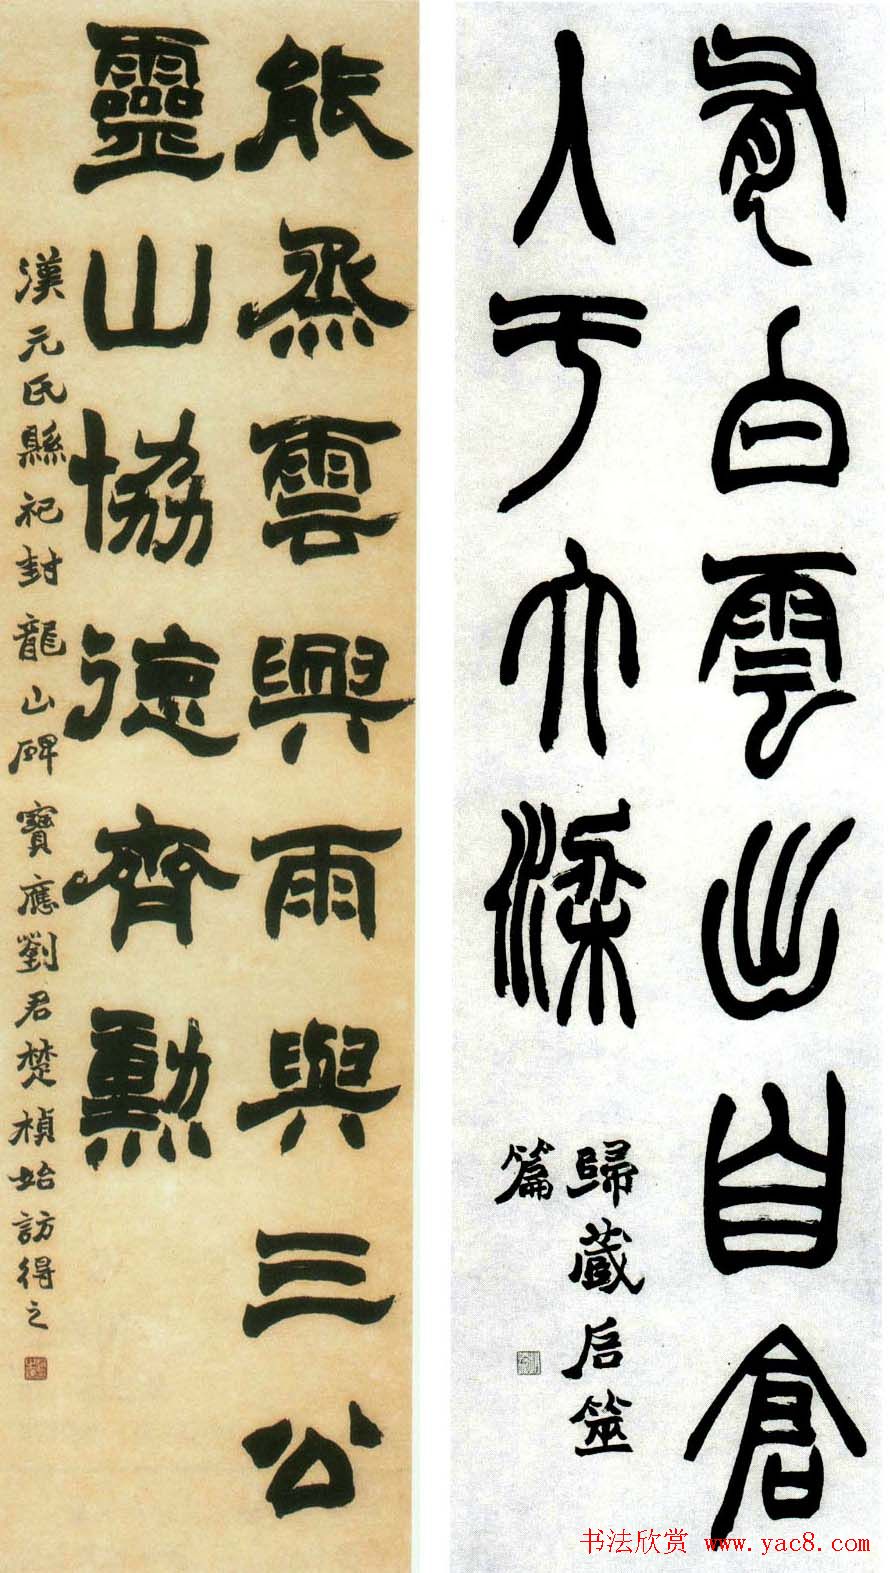 有白雲出自倉
入于大梁
歸藏启筮
篇
能烝雲興雨與三公
靈山協德齊勳
漢元氏縣祀封龍山碑寶應劉君楚楨始訪得之
书法欣赏 www.yac8.com